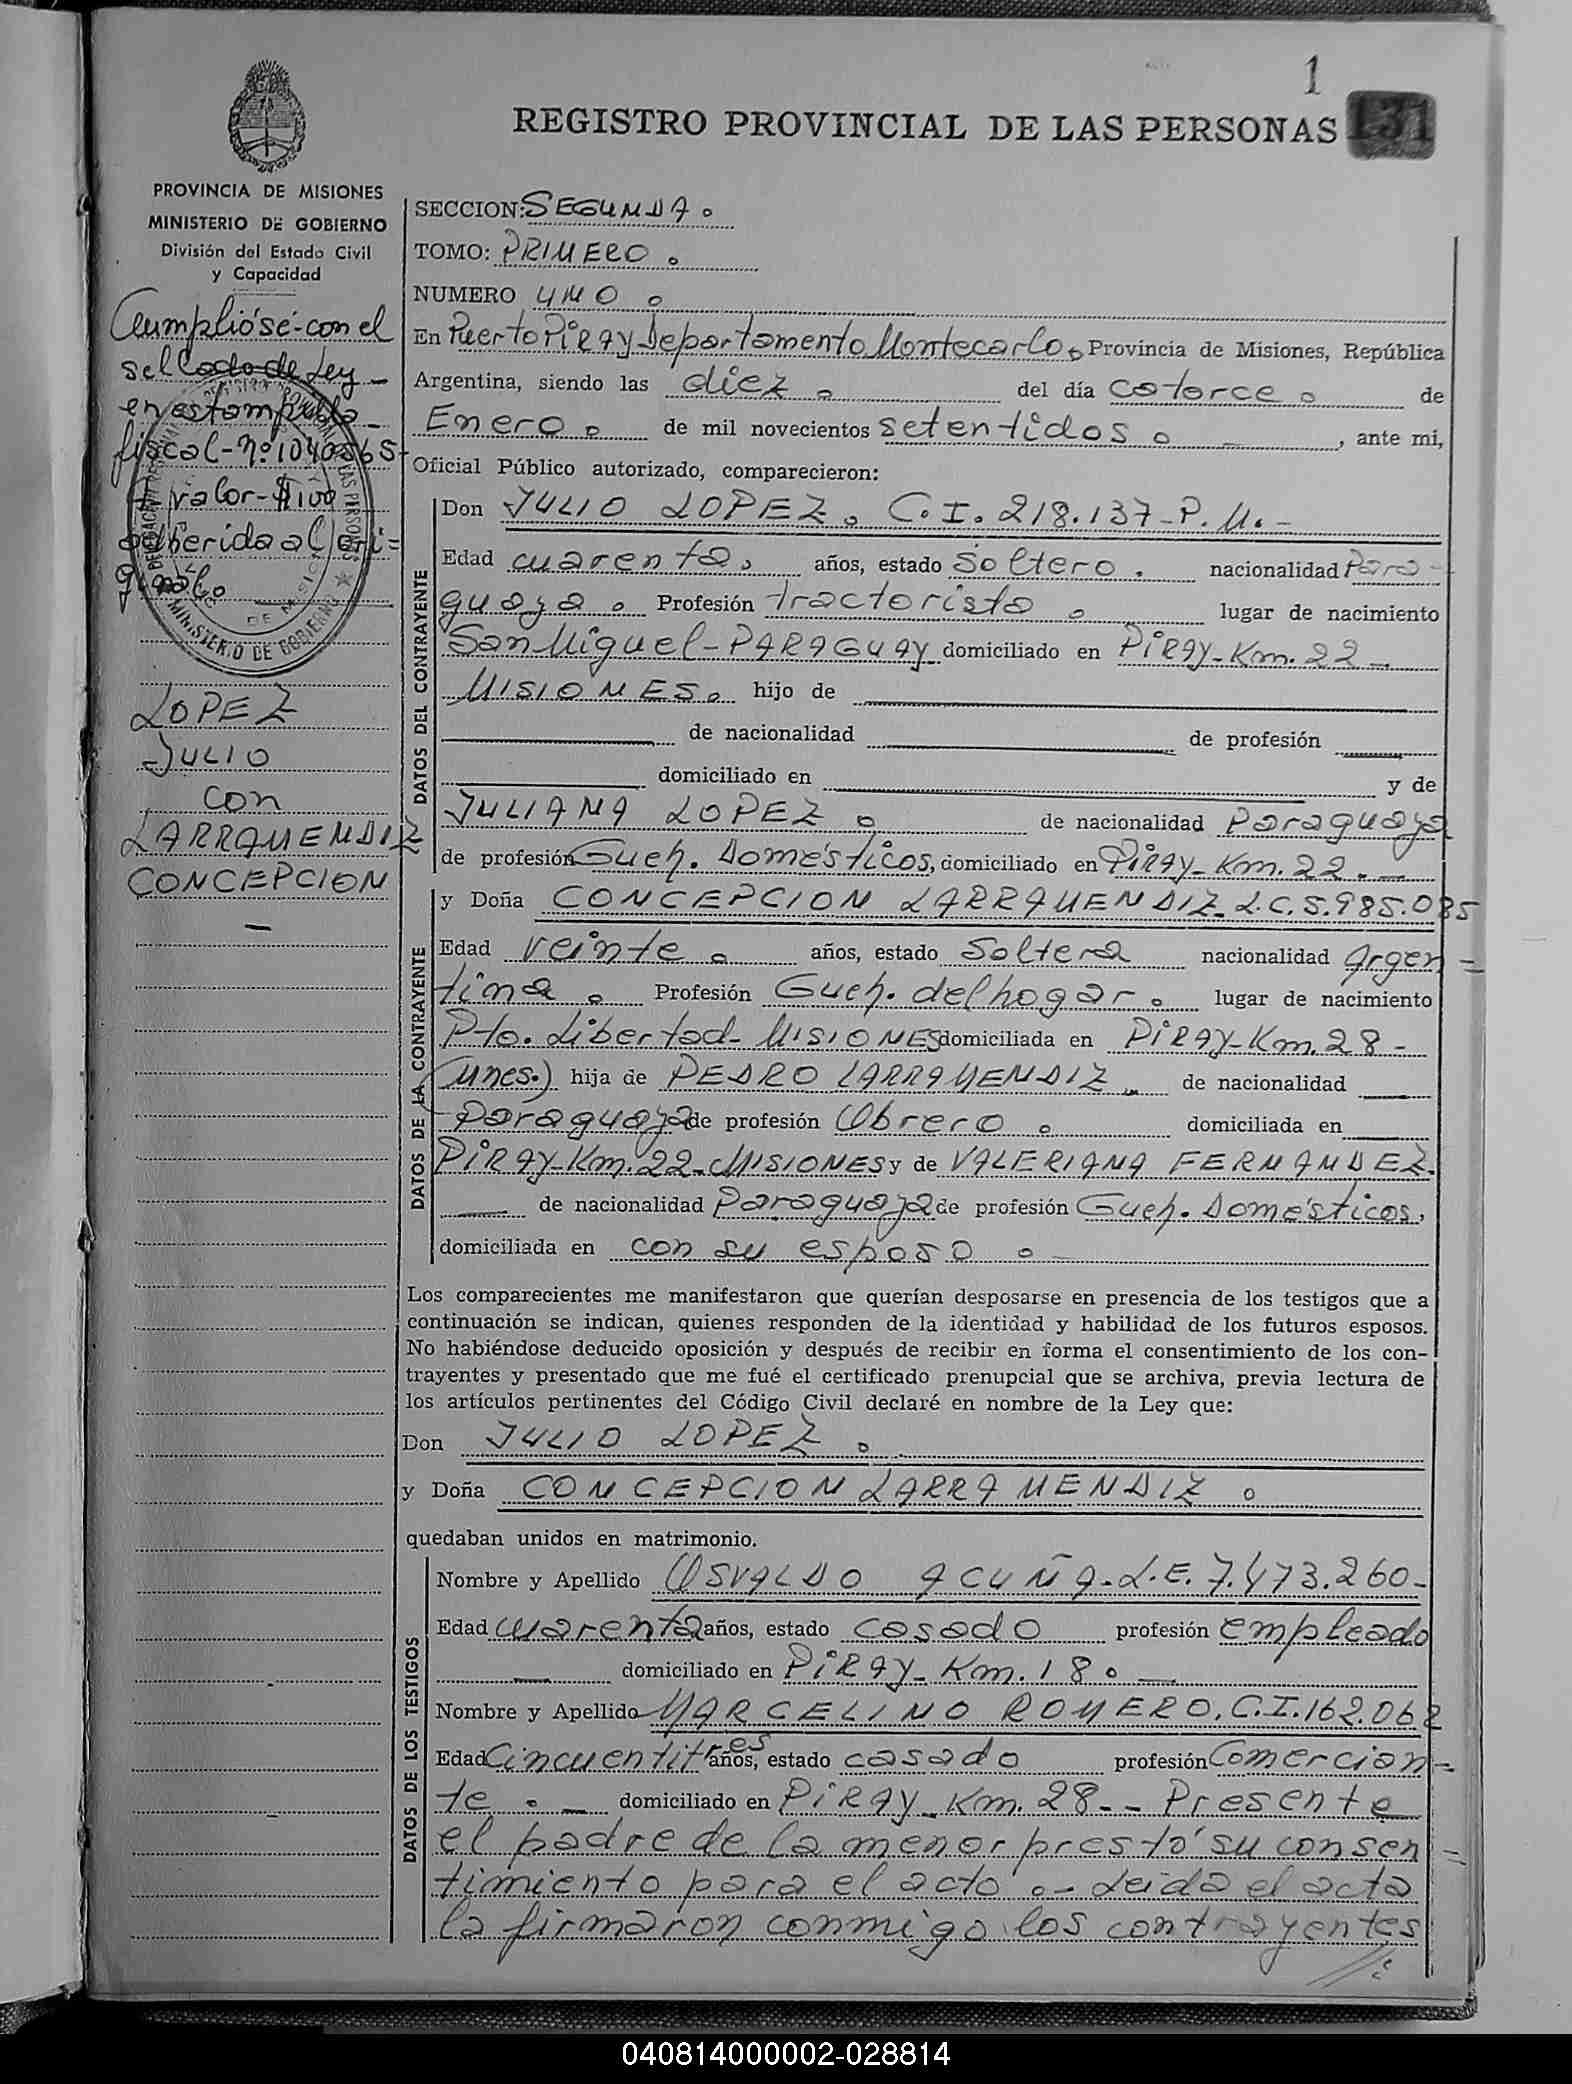 1
131
REGISTRO PROVINCIAL DE LAS PERSONAS
PROVINCIA DE MISIONES
MINISTERIO DE GOBIERNO
División del Estado Civil
y Capacidad
Cumplióse-con el
sellado de Ley-
en estampilla-
fiscal-nº1040365-
valor-$100
adherida al ori=
ginal.
MINISTERIO DE GOBIERNO
LOPEZ
JULIO
con
LARRAMENDIZ
CONCEPCION
SECCION: SEGUNDA.
TOMO: PRIMERO.
NUMERO UNO.
En Puerto Piray Departamento Montecarlo, Provincia de Misiones, República
Argentina, siendo las diez. del día catorce. de
Enero. de mil novecientos setentidos. , ante mi,
Oficial Público autorizado, comparecieron:
DATOS DEL CONTRAYENTE
Don JULIO LOPEZ. C.I. 218.137-P.M.-
Edad cuarenta. años, estado soltero. nacionalidad Para-
guaya. Profesión tractorista. lugar de nacimiento
San Miguel-PARAGUAY domiciliado en PIRAY-Km.22-
MISIONES. hijo de
de nacionalidad de profesión
domiciliado en y de
JULIANA LOPEZ. de nacionalidad Paraguaya
de profesión Queh. Domésticos, domiciliado en PIRAY-Km.22.-
DATOS DE LA CONTRAYENTE
y Doña CONCEPCION LARRAMENDIZ. L.C. 5.985.085
Edad veinte. años, estado soltera nacionalidad Argen=
tina. Profesión Queh. del hogar. lugar de nacimiento
Pto. Libertad-MISIONES domiciliada en PIRAY-Km.28-
(Mnes.) hija de PEDRO LARRAMENDIZ de nacionalidad
Paraguaya de profesión Obrero. domiciliada en
PIRAY-Km.22-MISIONES y de VALERIANA FERNANDEZ.
de nacionalidad Paraguaya de profesión Queh. Domésticos,
domiciliada en con su esposo.
Los comparecientes me manifestaron que querían desposarse en presencia de los testigos que a
continuación se indican, quienes responden de la identidad y habilidad de los futuros esposos.
No habiéndose deducido oposición y después de recibir en forma el consentimiento de los con-
trayentes y presentado que me fué el certificado prenupcial que se archiva, previa lectura de
los artículos pertinentes del Código Civil declaré en nombre de la Ley que:
Don JULIO LOPEZ.
y Doña CONCEPCION LARRAMENDIZ.
quedaban unidos en matrimonio.
DATOS DE LOS TESTIGOS
Nombre y Apellido OSVALDO ACUÑA-L.E. 7.473.260-
Edad cuarenta años, estado casado profesión empleado
domiciliado en PIRAY-Km.18.
Nombre y Apellido MARCELINO ROMERO. C.I. 162.062
Edad cincuentitres años, estado casado profesión Comercian=
te. domiciliado en PIRAY-Km.28-- Presente
el padre de la menor prestó su consen=
timiento para el acto.- Leída el acta
la firmaron conmigo los contrayentes
//:
040814000002-028814